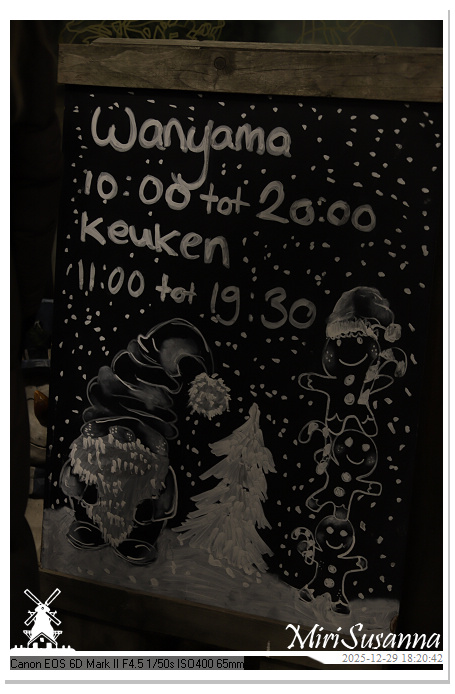 Wanyama
10:00 tot 20:00
Keuken
11:00 tot 19:30
MiriSusanna
2025-12-29 18:20:42
Canon EOS 6D Mark II F4.5 1/50s ISO400 65mm